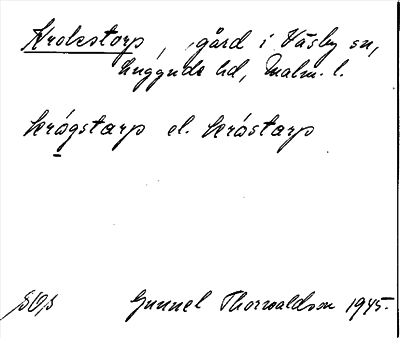 Krokstorp, gård i Väsby sn,
Luggude hd, Malm. l.
krógstarp el. króstarp
SOS Gunnel Thorvaldson 1945.